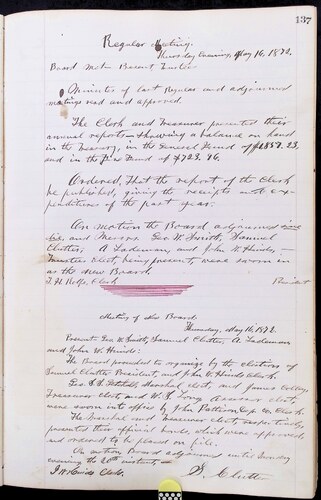 137
Regular Meeting.
Thursday Evening, May 16, 1872.
Board Met. Present Trustees
Minutes of last Regular and adjourned
meetings read and approved.
The Clerk and Treasurer presented their
annual reports showing a balance on hand
in the Treasury, in the General Fund of $1857.23,
and in the Fire Fund of $723.96.
Ordered, That the report of the Clerk
be published, giving the receipts and ex-
penditures of the past year.
On motion the Board adjourned
and Messrs Geo. W. Smith, Samuel
Clutter, A. Lademan, and John W. Hinds,
Trustees elect, being present, were sworn in
as the New Board.
Clerk President
Meeting of New Board.
Thursday, May 16, 1872.
Present: Geo. W. Smith, Samuel Clutter, A. Lademan
and John W. Hinds.
The Board proceeded to organize by the election of
Samuel Clutter President, and John W. Hinds Clerk.
Marshal elect, and James
Treasurer elect and W. S. Long Assessor elect,
were sworn into office by John
The Marshal and Treasurer elect, respectively
presented their official bonds, which were approved
and ordered to be placed on file.
On motion, Board adjourned until
evening the 20th instant.
J. W. Hinds Clerk. S. Clutter